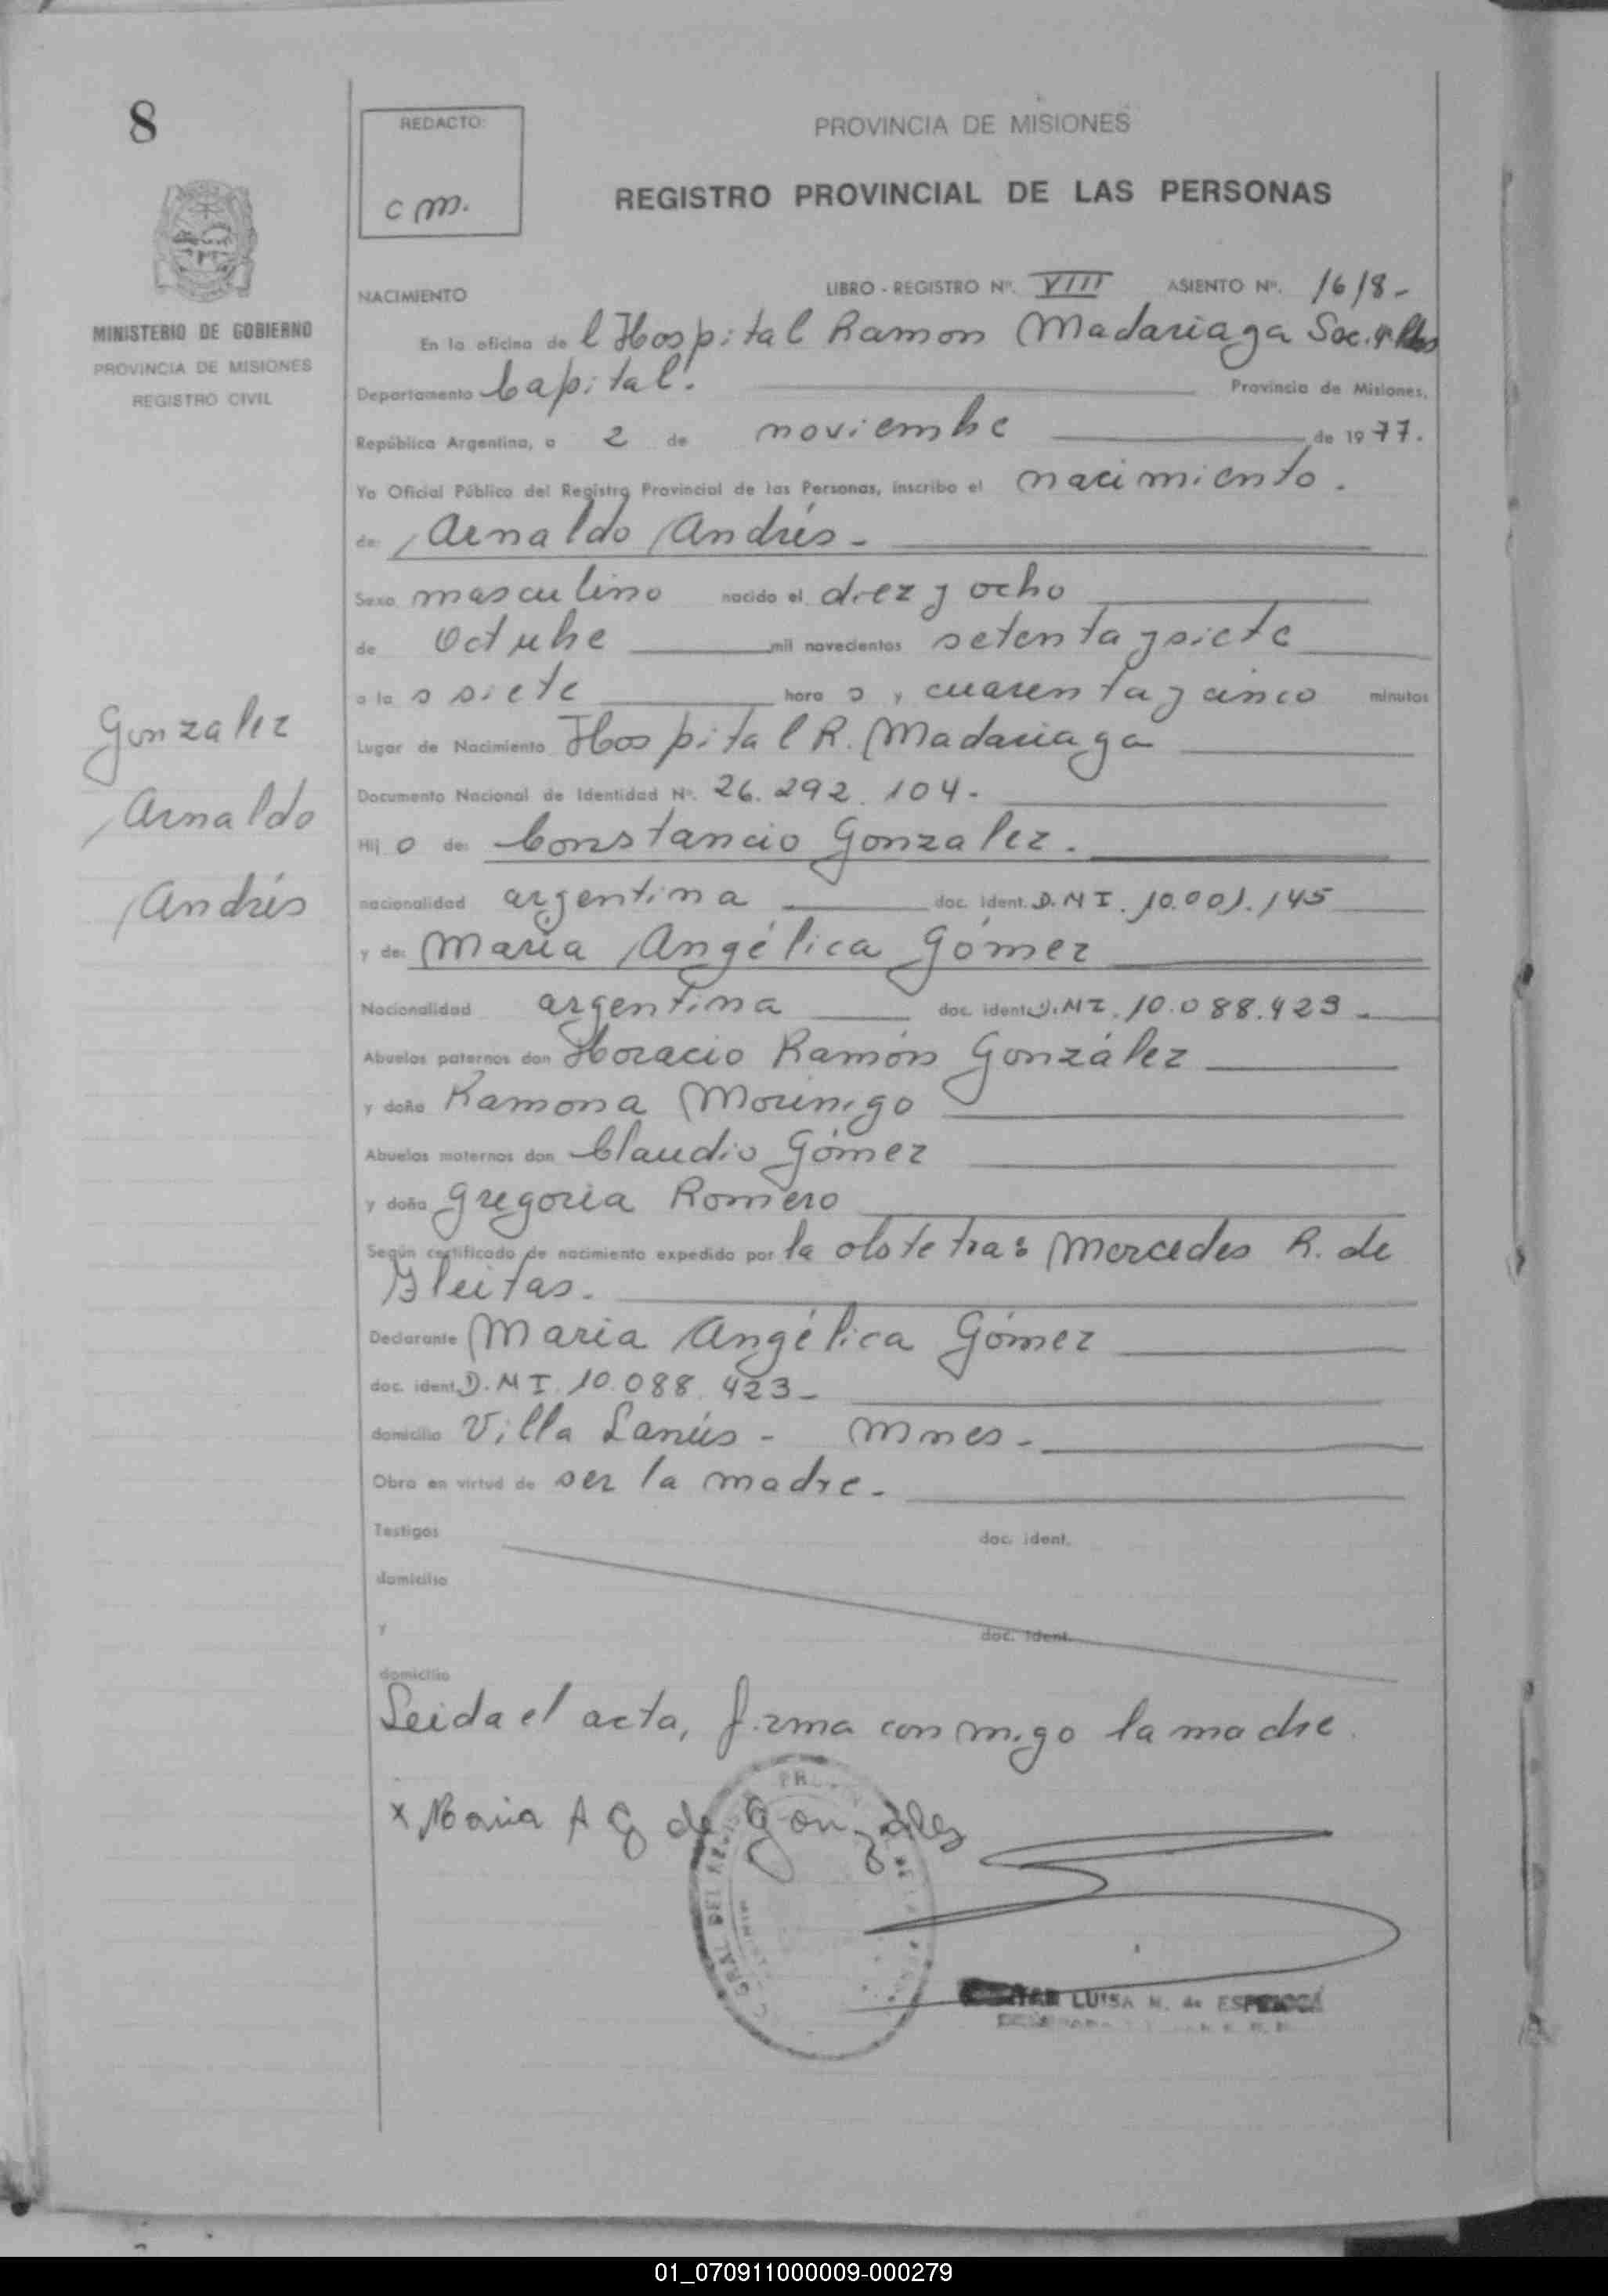 8
REDACTO:
c m.
PROVINCIA DE MISIONES
REGISTRO PROVINCIAL DE LAS PERSONAS
MINISTERIO DE GOBIERNO
PROVINCIA DE MISIONES
REGISTRO CIVIL
NACIMIENTO
LIBRO - REGISTRO Nº. VIII ASIENTO Nº. 1618-
En la oficina de l Hospital Ramon Madariaga Sec.
Departamento Capital. Provincia de Misiones,
República Argentina, a 2 de noviembre de 1977.
Yo Oficial Público del Registro Provincial de las Personas, inscribo el nacimiento.
de: Arnaldo Andrés-
Sexo masculino nacido el diez y ocho
de Octubre mil novecientos setenta y siete
a la s siete hora s y cuarenta y cinco minutos
Gonzalez
Arnaldo
Andrés
Lugar de Nacimiento Hospital R. Madariaga
Documento Nacional de Identidad Nº. 26.292.104-
Hij o de: Constancio Gonzalez.
nacionalidad argentina doc. ident. D.N I. 10.001.145
y de: Maria Angélica Gómez
Nacionalidad argentina doc. ident. D.N I. 10.088.423-
Abuelos paternos don Horacio Ramón González
y doña Ramona Morinigo
Abuelos maternos don Claudio Gómez
y doña Gregoria Romero
Según certificado de nacimiento expedido por la obstetra: Mercedes R. de
Fleitas.
Declarante Maria Angélica Gómez
doc. ident. D.N I. 10.088.423-
domicilio Villa Lanús - Mnes-
Obra en virtud de ser la madre-
Testigos doc. ident.
domicilio
y doc. ident.
domicilio
Leida el acta, firma conmigo la madre.
x Maria A G de Gonzales
GRAL DEL
LUISA N. de ESPINOSA
01_070911000009-000279